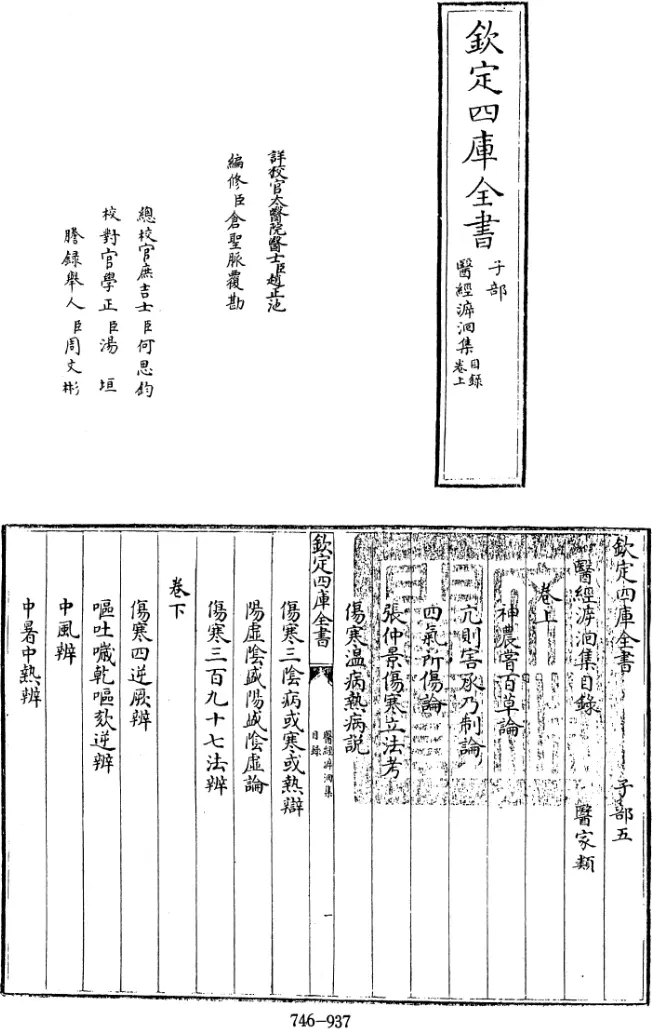 欽定四庫全書
子部
醫經溯洄集目錄
卷上
詳校官太醫院醫士臣趙正池
編修臣倉聖脈覆勘
總校官庶吉士臣何思鈞
校對官學正臣湯垣
謄錄舉人臣周文彬
欽定四庫全書 子部五
醫經溯洄集目錄 醫家類
卷上
神農嘗百草論
亢則害承乃制論
四氣所傷論
張仲景傷寒立法考
傷寒温病熱病說
欽定四庫全書
醫經溯洄集
目錄
一
傷寒三陰病或寒或熱辯
陽虛陰盛陽盛陰虛論
傷寒三百九十七法辨
卷下
傷寒四逆厥辨
嘔吐噦乾嘔欬逆辨
中風辨
中暑中熱辨
746-937